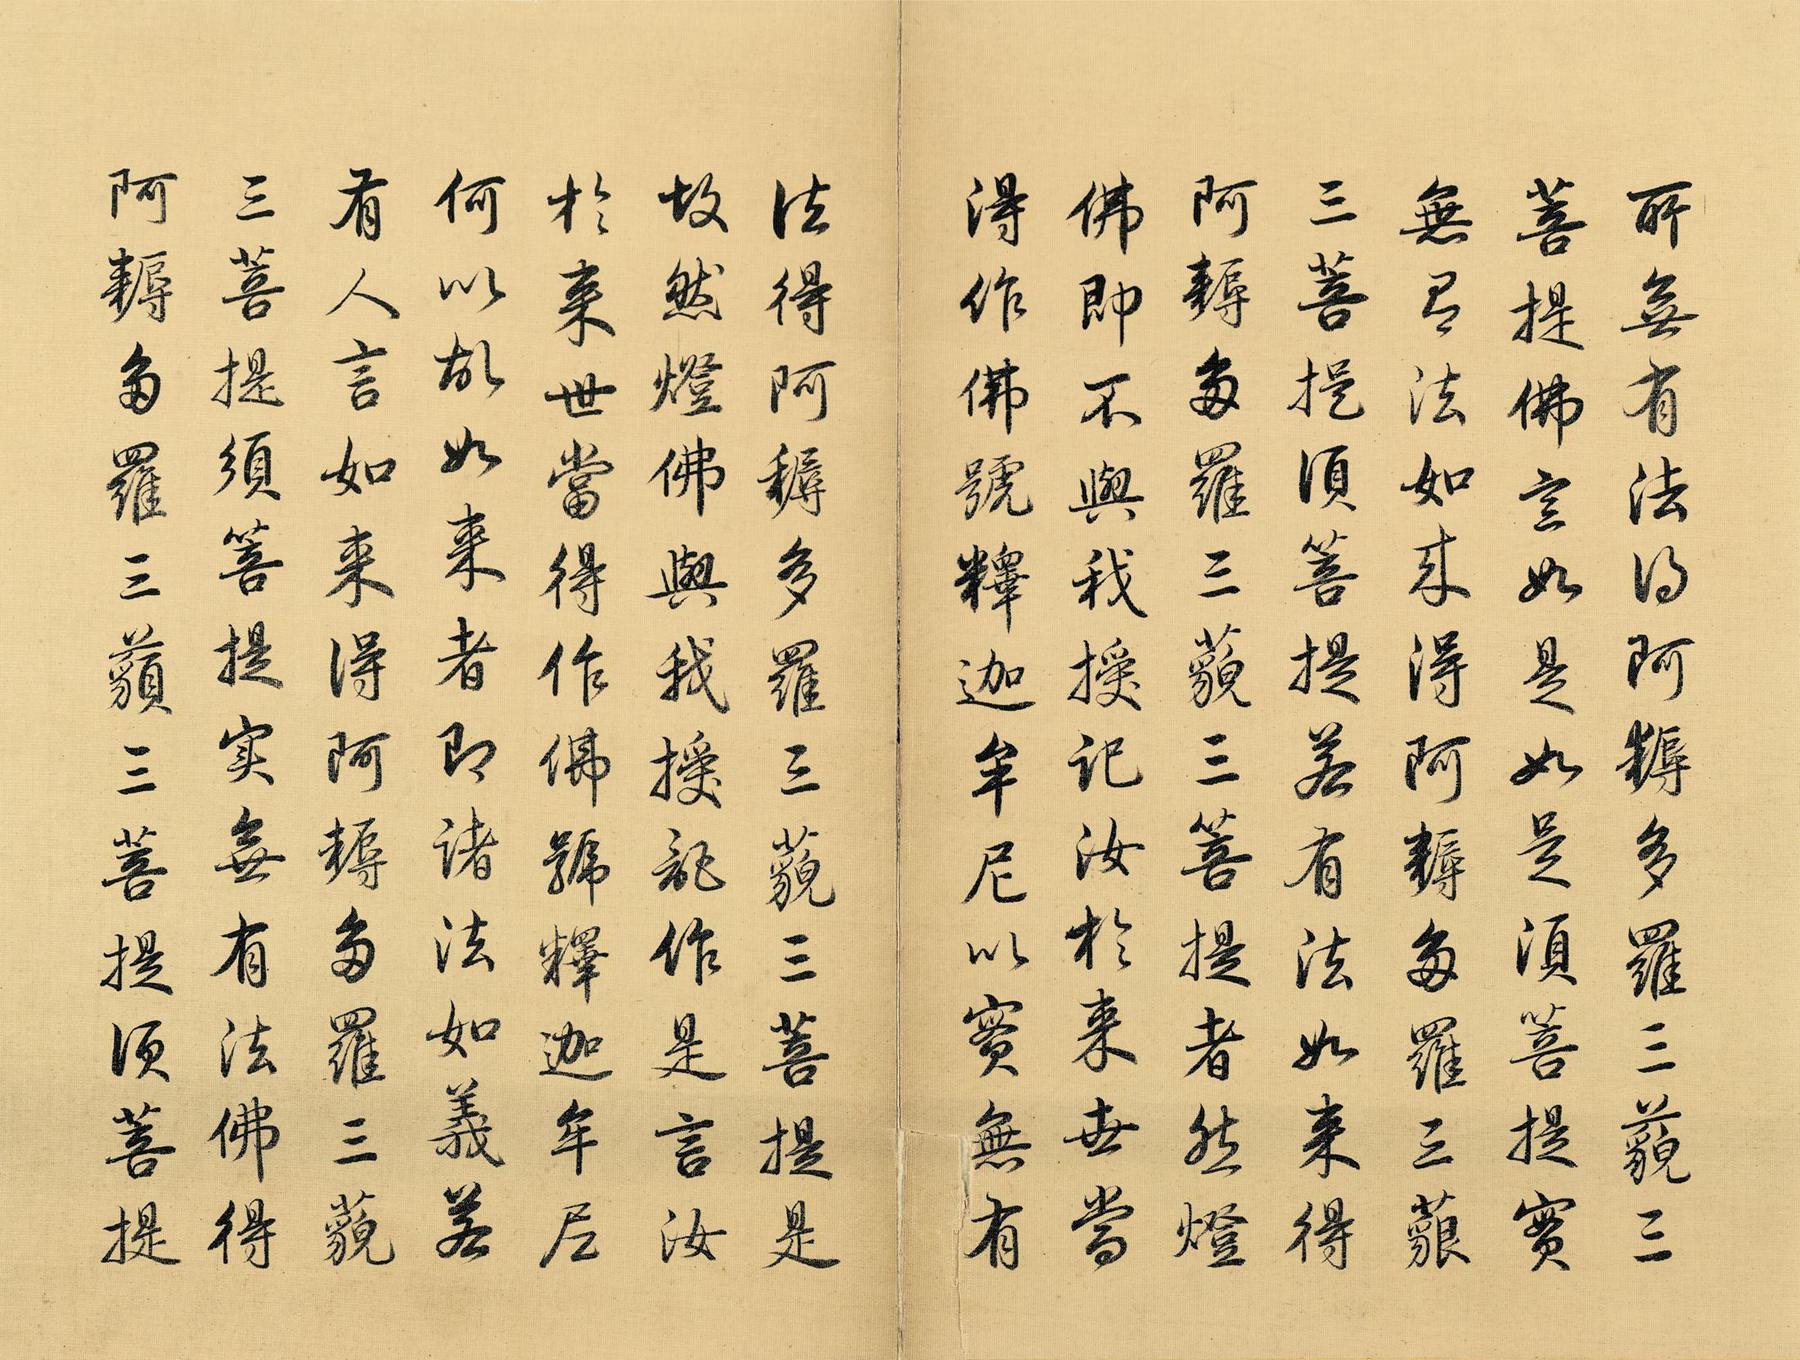 所無有法得阿耨多羅三藐三
菩提佛言如是如是須菩提實
無有法如来得阿耨多羅三藐
三菩提須菩提若有法如来得
阿耨多羅三藐三菩提者然燈
佛即不與我授記汝於来世當
得作佛號釋迦牟尼以實無有
法得阿耨多羅三藐三菩提是
故然燈佛與我授記作是言汝
於来世當得作佛號釋迦牟尼
何以故如来者即諸法如義若
有人言如来得阿耨多羅三藐
三菩提須菩提實無有法佛得
阿耨多羅三藐三菩提須菩提